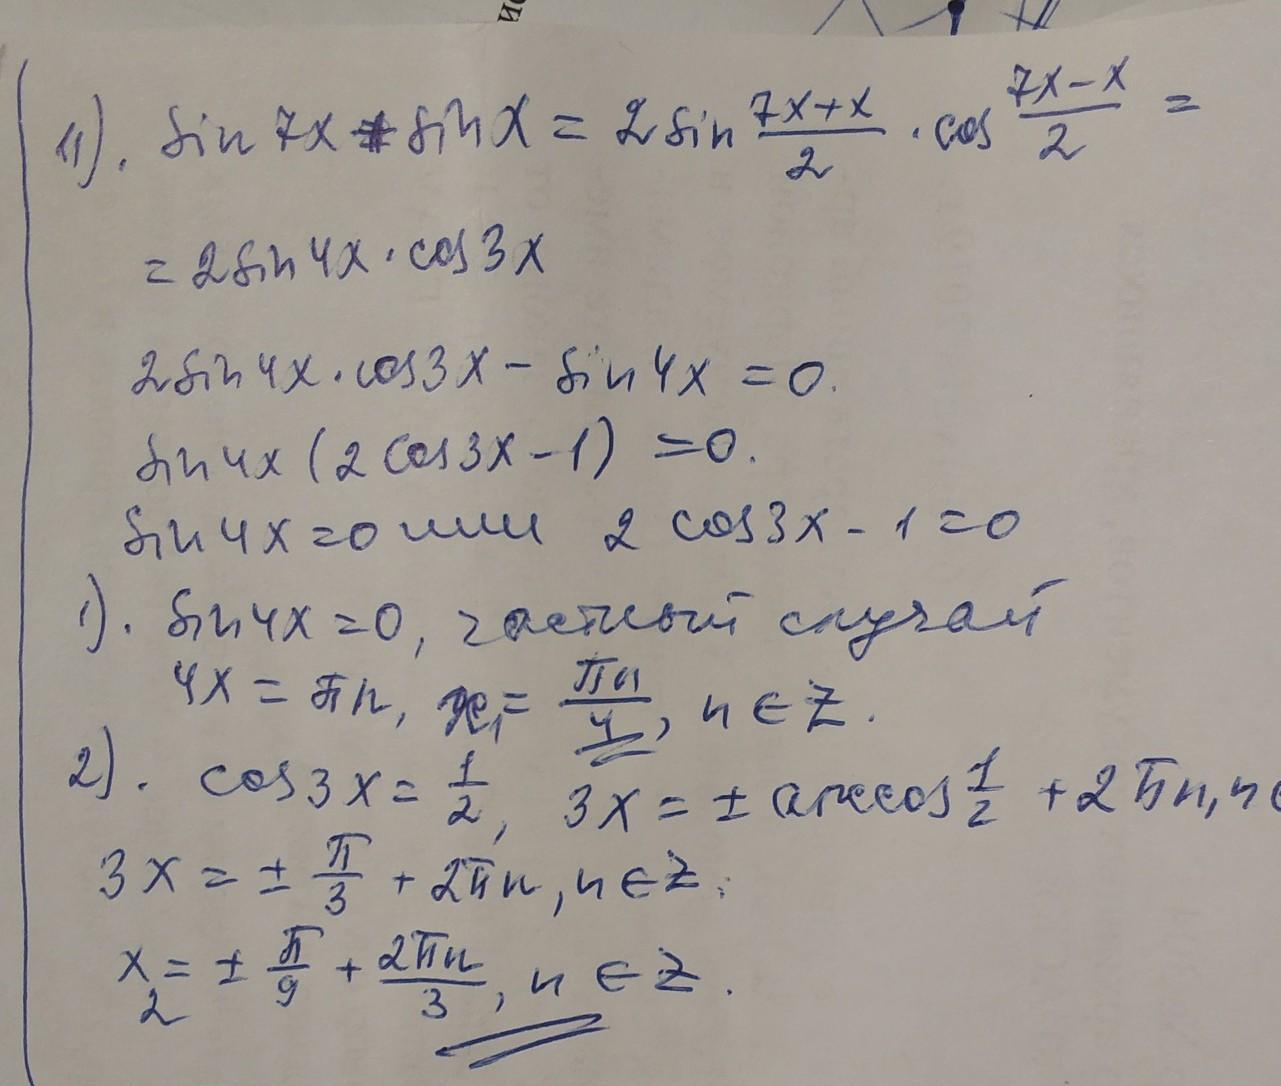 11). sin 7x + sin x = 2 sin (7x+x)/2 · cos (7x-x)/2 =
= 2 sin 4x · cos 3x
2 sin 4x · cos 3x - sin 4x = 0.
sin 4x (2 cos 3x - 1) = 0.
sin 4x = 0 или 2 cos 3x - 1 = 0
1). sin 4x = 0, частный случай
4x = πn, x₁ = πn/4, n ∈ Z.
2). cos 3x = 1/2, 3x = ± arccos 1/2 + 2πn, n ∈
3x = ± π/3 + 2πn, n ∈ Z.
x₂ = ± π/9 + 2πn/3, n ∈ Z.